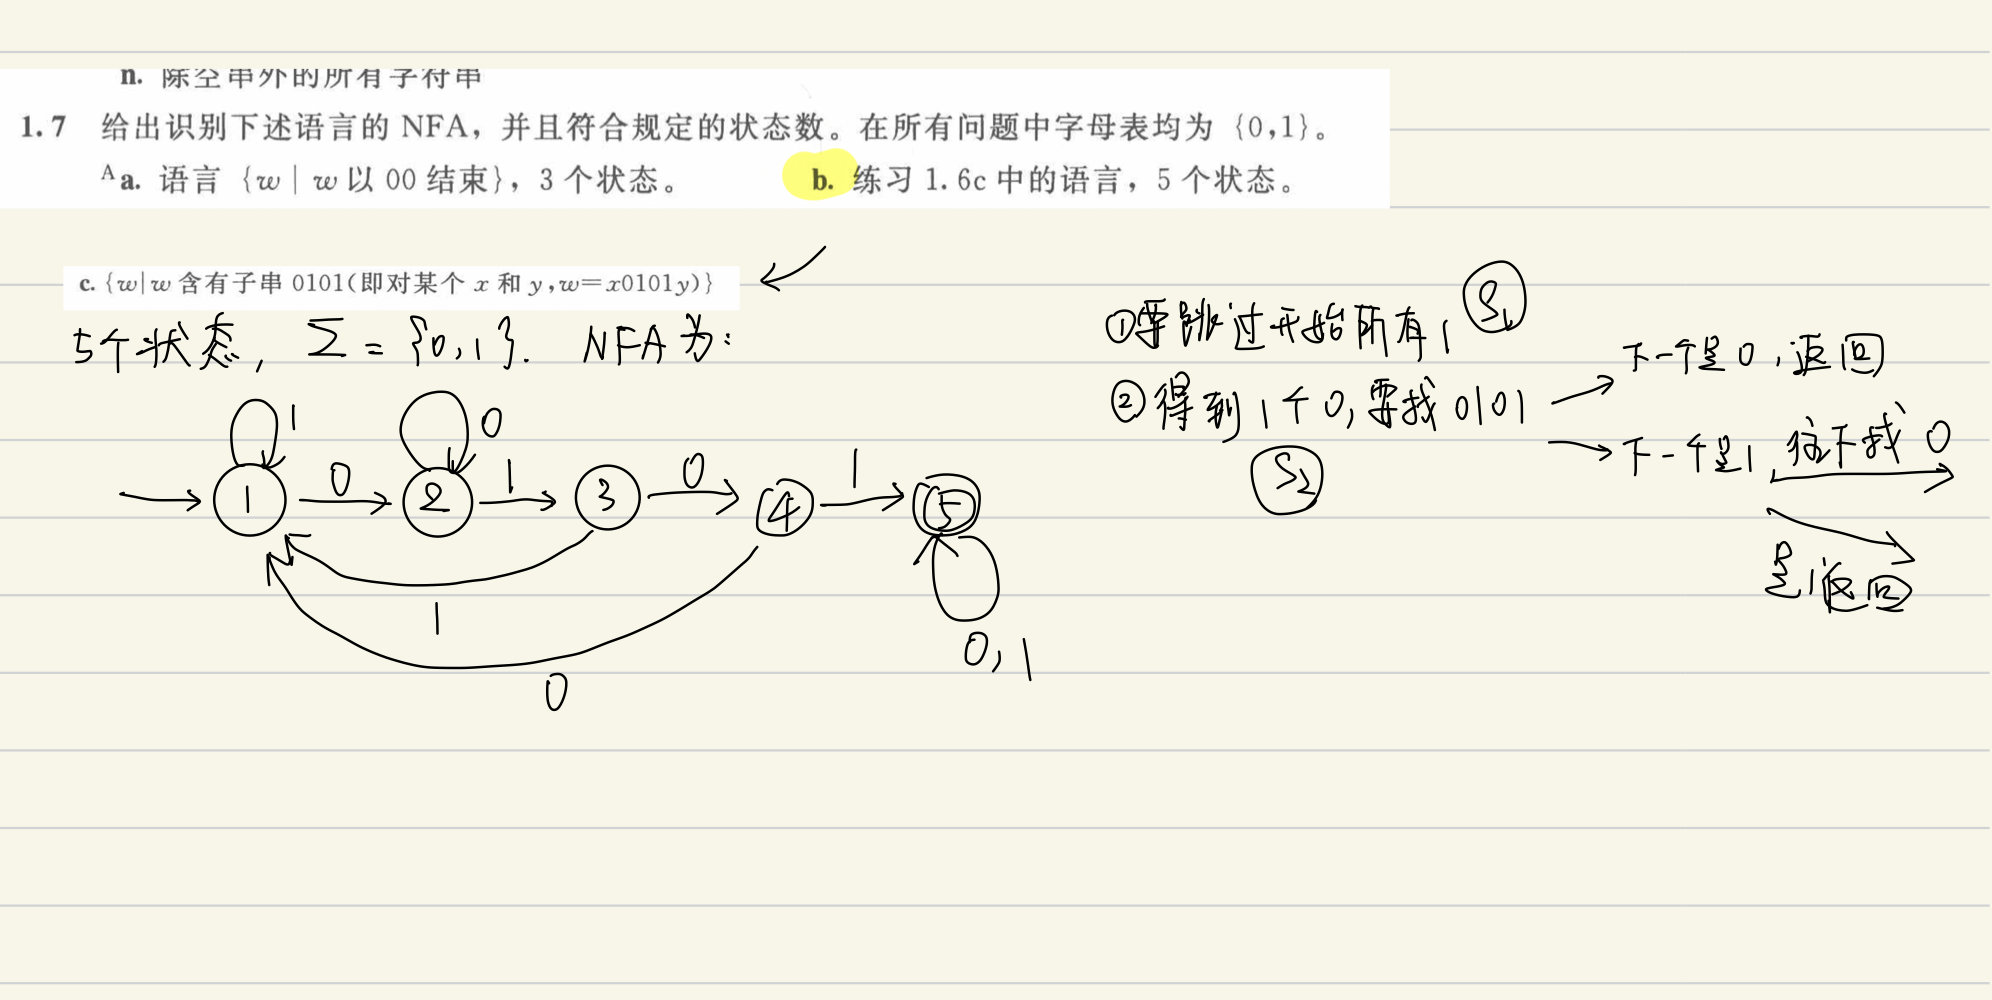 n. 除空串外的所有字符串
1.7 给出识别下述语言的 NFA，并且符合规定的状态数。在所有问题中字母表均为 {0,1}。
ᴬa. 语言 {w | w 以 00 结束}，3 个状态。 b. 练习 1.6c 中的语言，5 个状态。
c. {w|w 含有子串 0101(即对某个 x 和 y,w=x0101y)}
5个状态, Σ = {0,1}. NFA为:
①要跳过开始所有1 S₁
②得到1个0,要找0101
S₂
下一个是0,返回
下一个是1,往下找0
是1返回
1 0
1 0 2 1 3 0 4 1 5
1
0
0,1